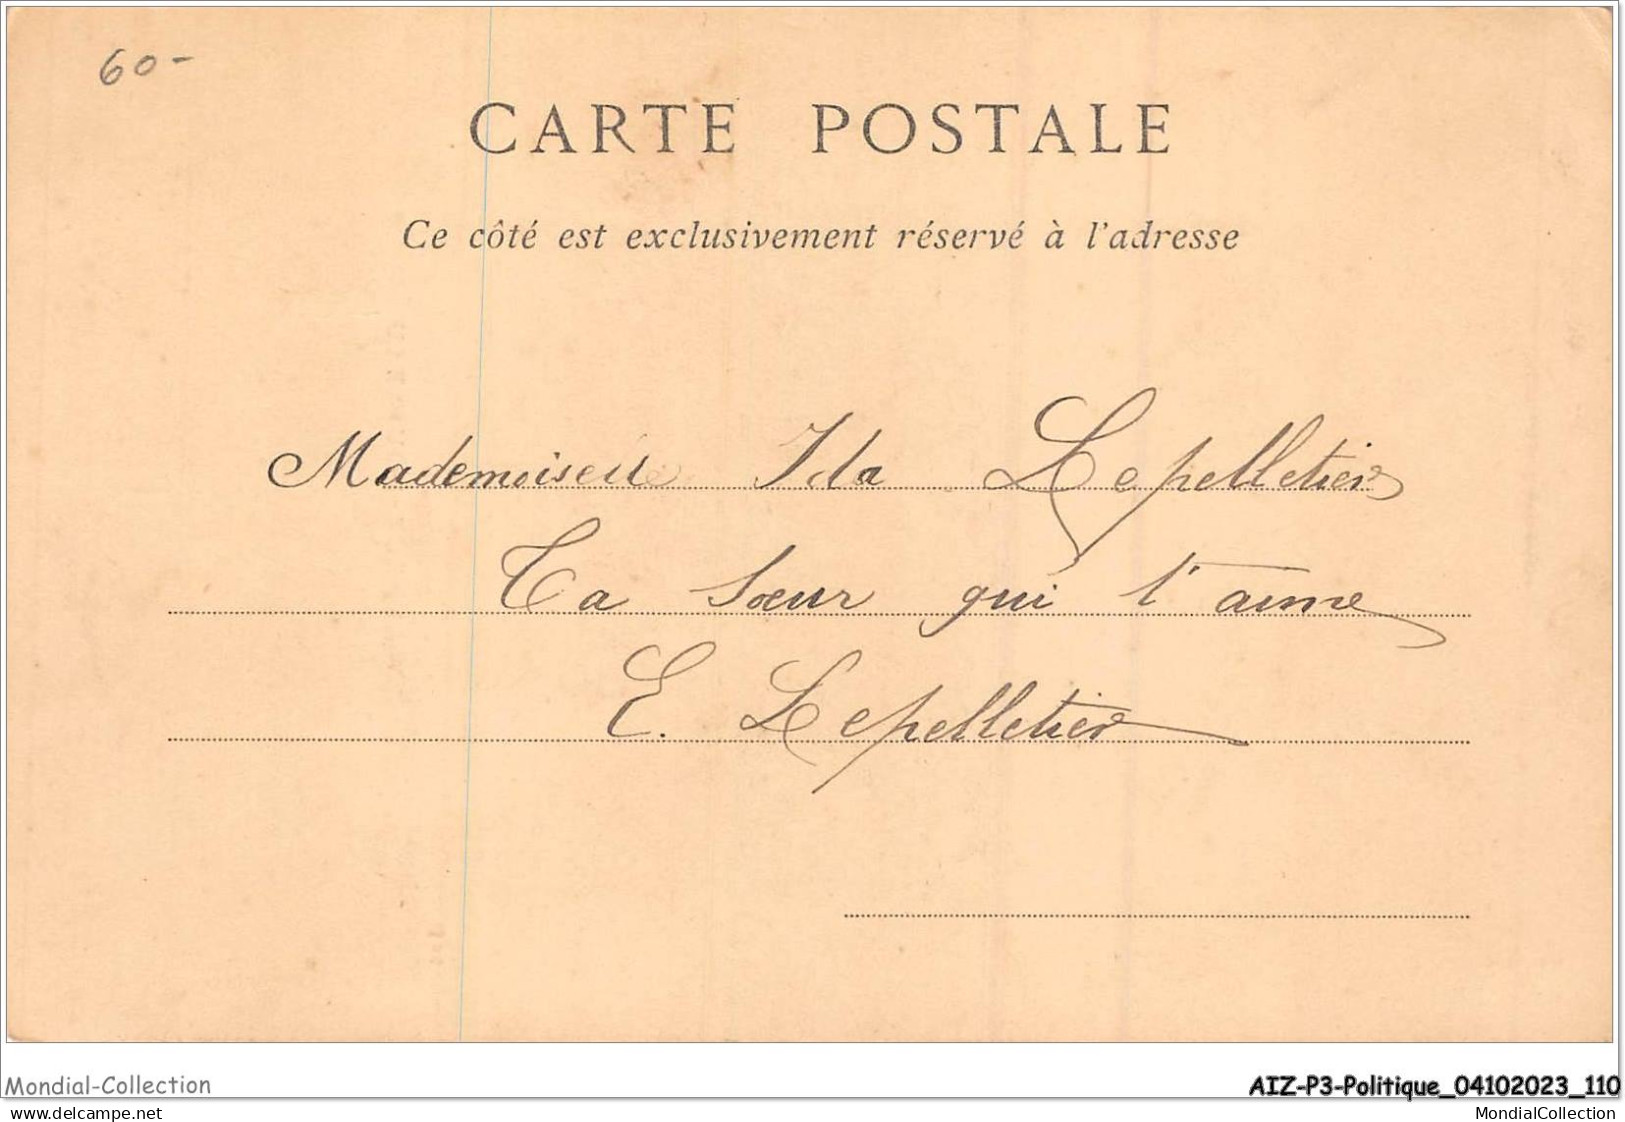 60-
CARTE POSTALE
Ce côté est exclusivement réservé à l'adresse
Mademoiselle Ida Lepelletier
Ta Sœur qui t'aime
E. Lepelletier
Mondial-Collection
AIZ-P3-Politique_04102023_110
delcampe.net
MondialCollection